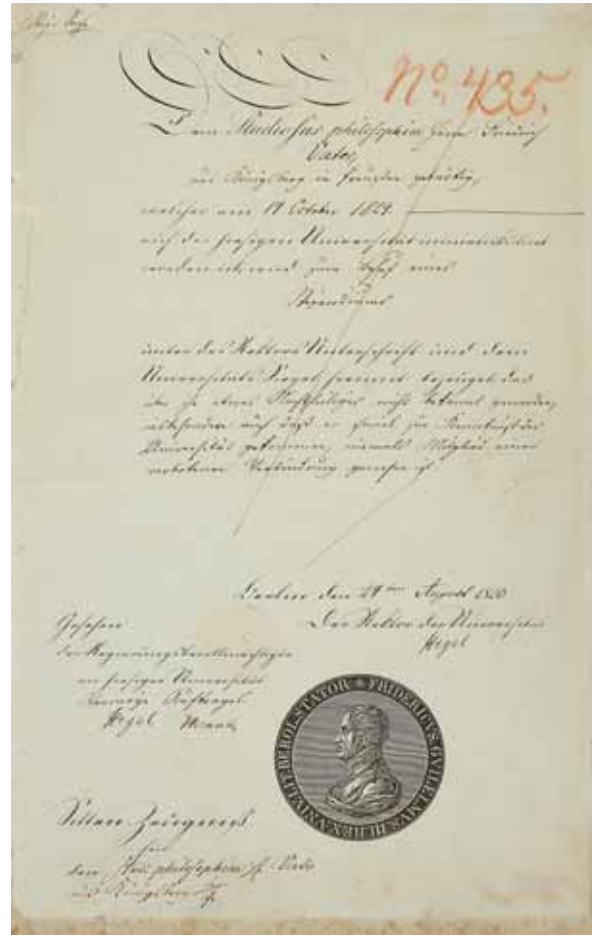 No. 435.
Dem Studiosus philosophiae Herrn Friedrich
Vater,
aus Königsberg in Preußen gebürtig,
welcher am 19 October 1829.
auf der hiesigen Universität immatriculirt
worden ist, wird zum Behuf eines
Stipendiums
unter des Rektors Unterschrift und dem
Universitäts Siegel hiermit bezeuget daß
über ihn etwas Nachtheiliges nicht bekannt geworden,
insbesondere auch daß er soviel zur Kenntniß der
Universität gekommen, niemals Mitglied einer
verbotenen Verbindung gewesen ist.
Berlin den August 1830
Der Rektor der Universität
Hegel
Gesehen
der Regierungsbevollmächtigte
an hiesiger Universität
Hegel
FRIDERICVS GVILELMVS III REX VNIV LIT BEROL STATOR
Sitten Zeugniß
für
den Stud philosophiae H. Vater
aus Königsberg